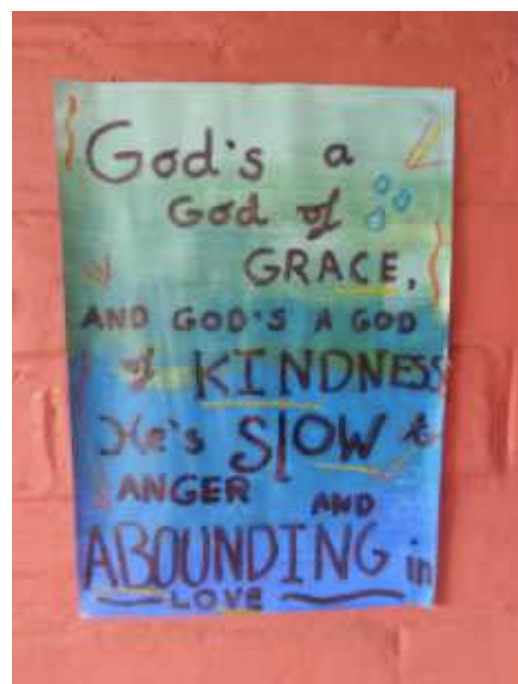 God's a
God of
GRACE,
AND GOD'S A GOD
of KINDNESS
He's SlOW to
ANGER AND
ABOUNDING in
LOVe